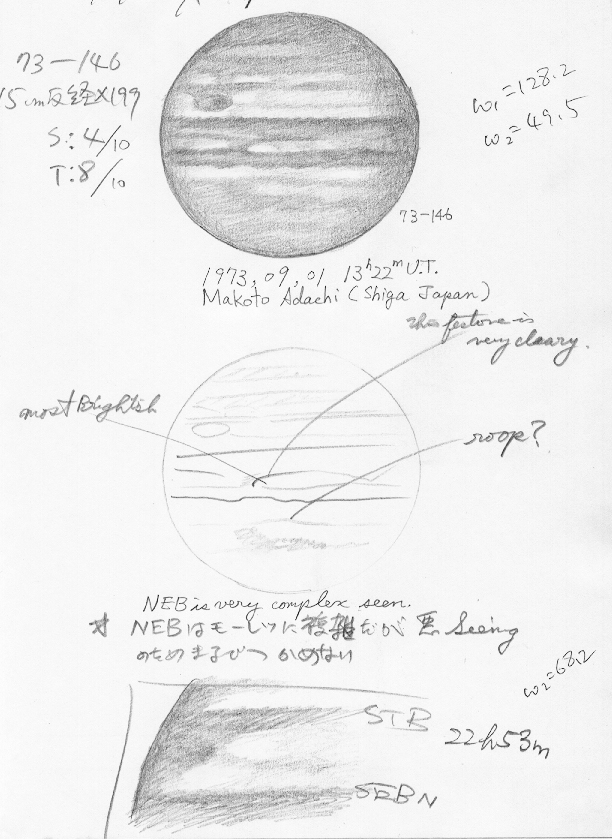 73-146
15cm反経×199
S: 4/10
T: 8/10
ω₁=128.2
ω₂=49.5
73-146
1973, 09, 01, 13ʰ22ᵐ U.T.
Makoto Adachi (Shiga Japan)
this festure is
very cleary.
most Brightish
roop?
NEB is very complex seen.
NEBはモーレツに複雑だが 悪 Seeing
のためまるでつかめない
ω₂=68.2
STB
22h53m
SEBN